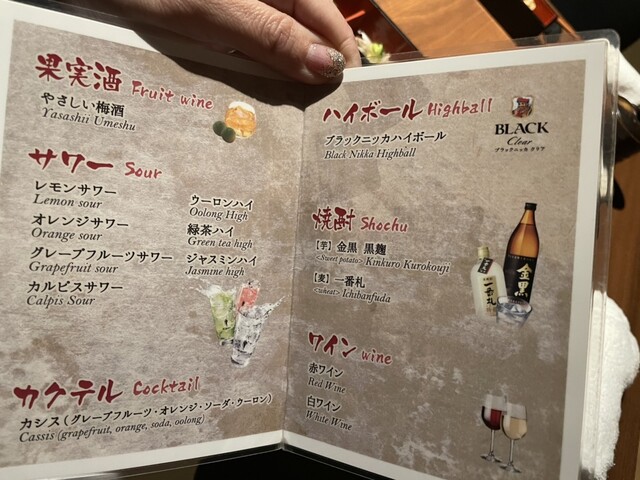 果実酒 Fruit wine
やさしい梅酒
Yasashii Umeshu
サワー Sour
レモンサワー
Lemon sour
オレンジサワー
Orange sour
グレープフルーツサワー
Grapefruit sour
カルピスサワー
Calpis Sour
ウーロンハイ
Oolong High
緑茶ハイ
Green tea high
ジャスミンハイ
Jasmine high
カクテル Cocktail
カシス(グレープフルーツ・オレンジ・ソーダ・ウーロン)
Cassis (grapefruit, orange, soda, oolong)
ハイボール Highball
ブラックニッカハイボール
Black Nikka Highball
BLACK
Clear
ブラックニッカ クリア
焼酎 Shochu
【芋】金黒 黒麹
<Sweet potato> Kinkuro Kurokouji
【麦】一番札
<wheat> Ichibanfuda
一番札
金黒
ワイン wine
赤ワイン
Red Wine
白ワイン
White Wine